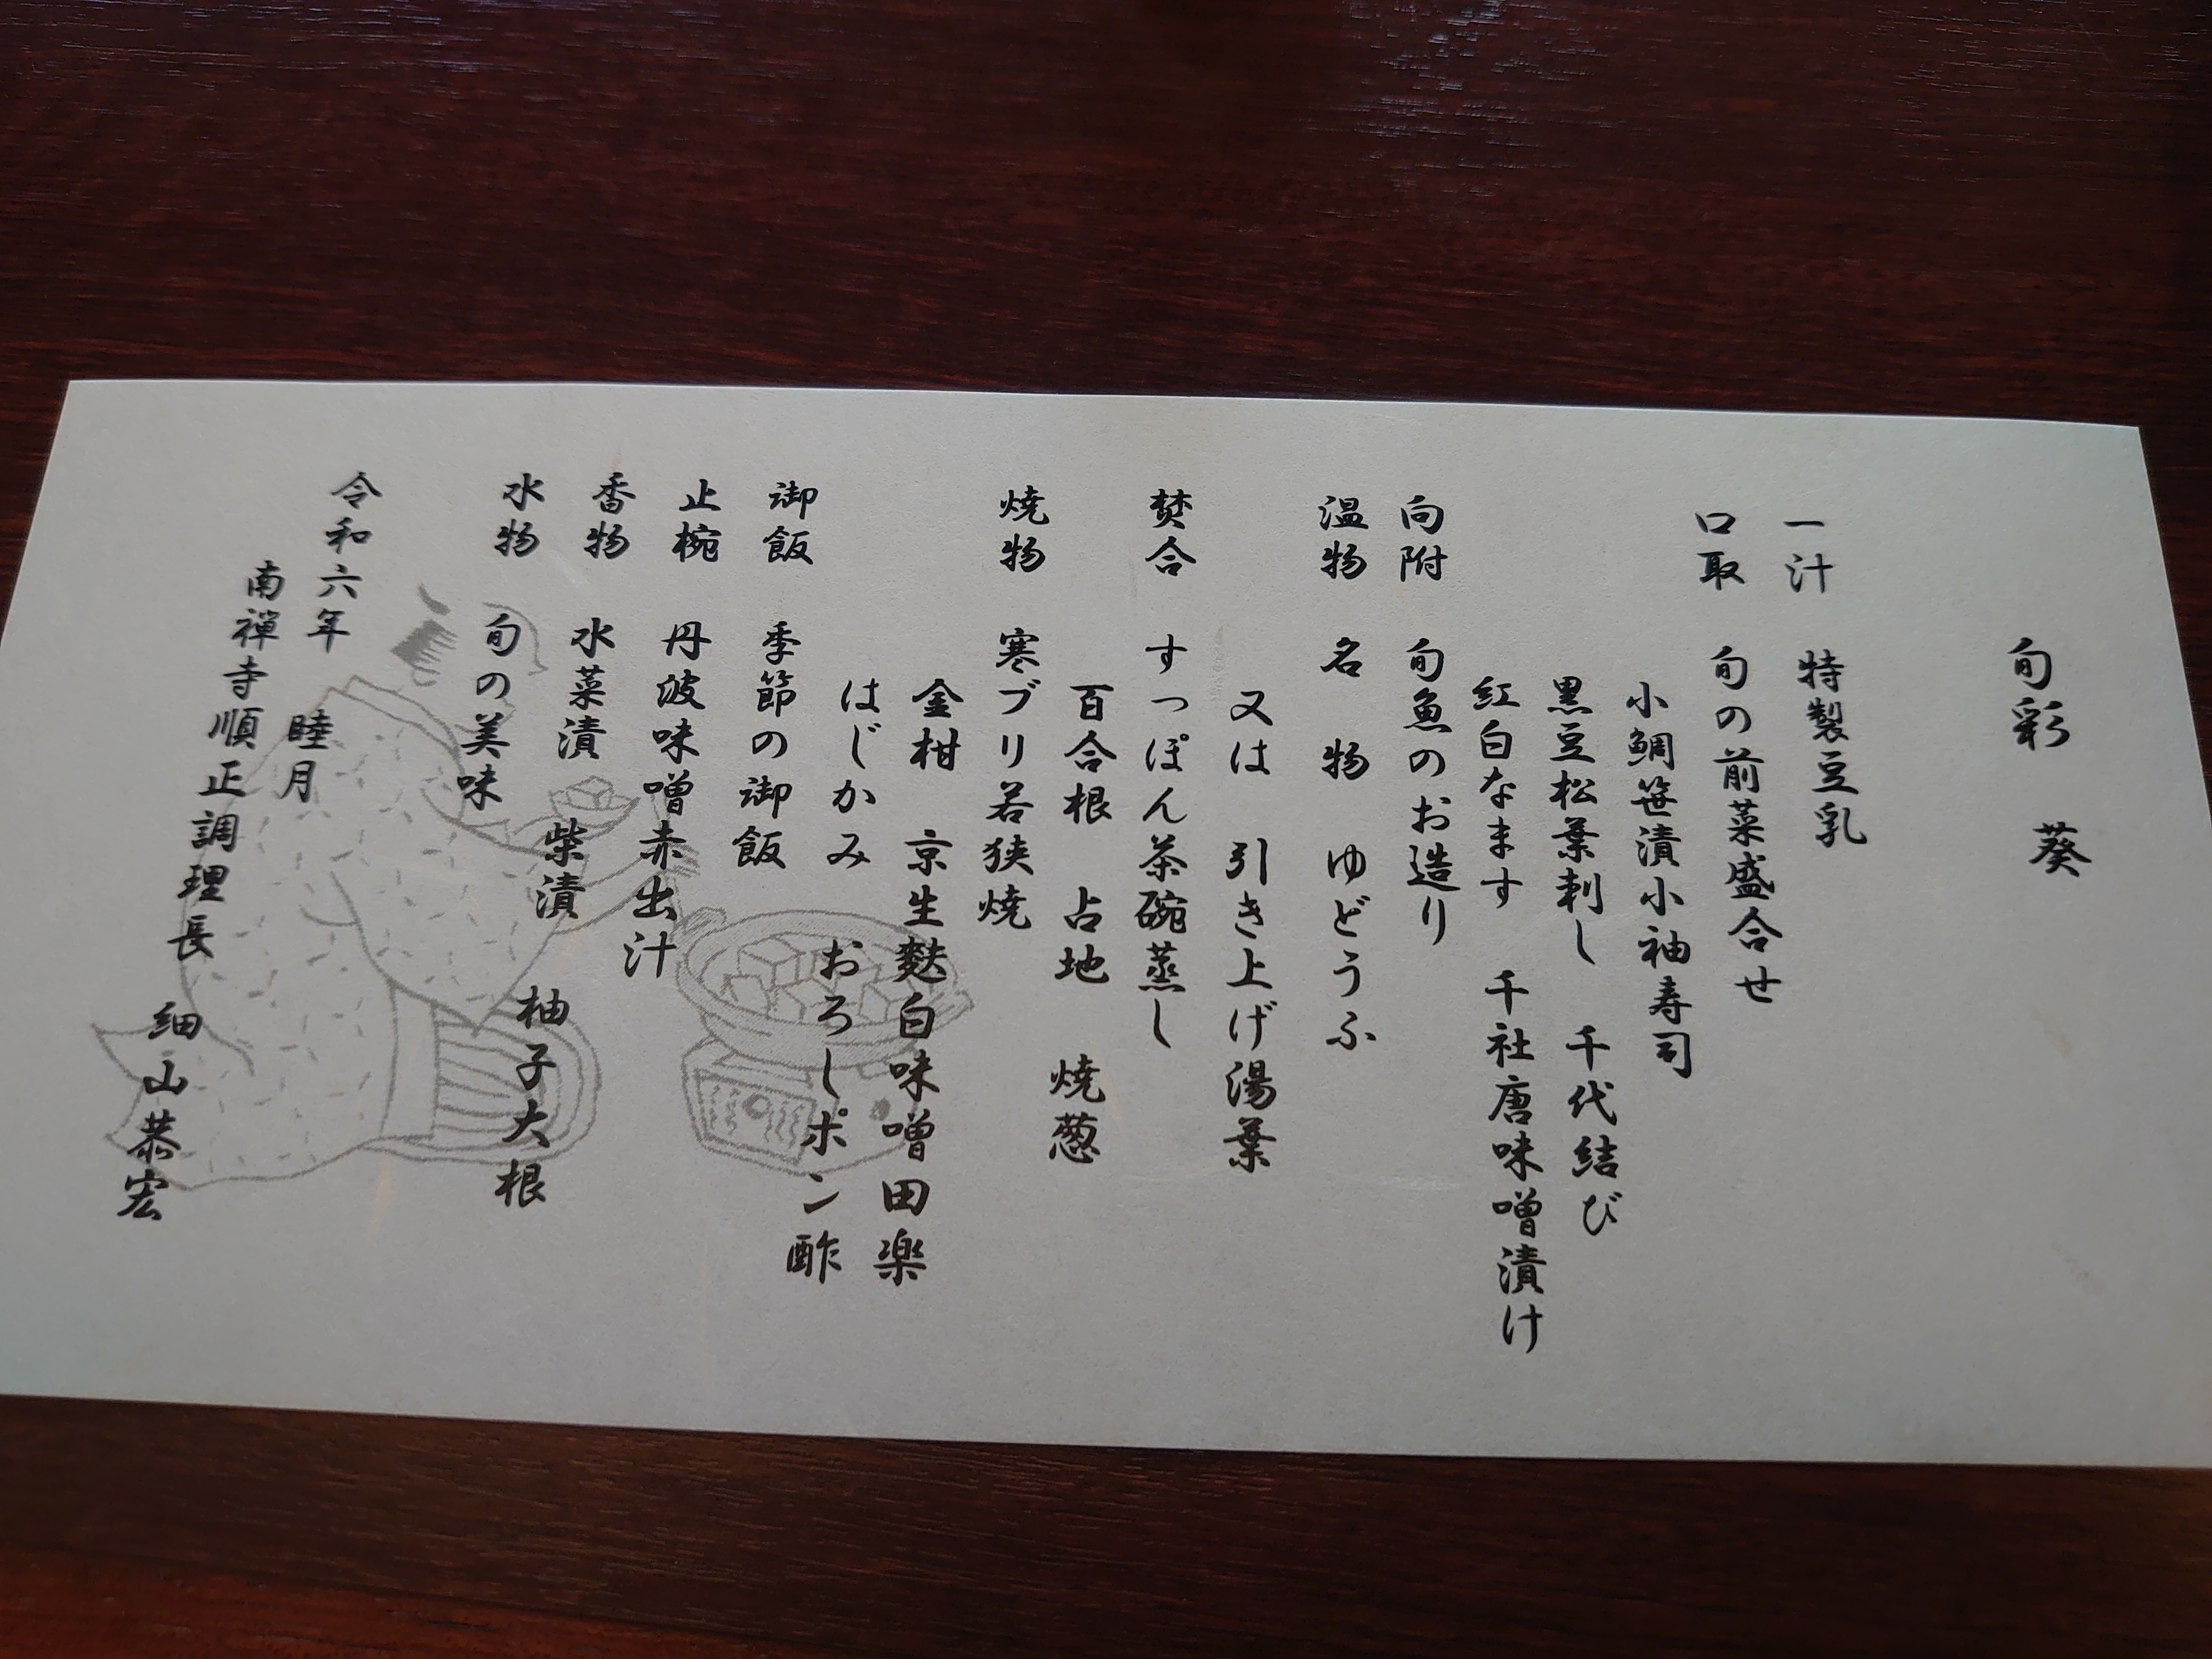 旬彩 葵
一汁 特製豆乳
口取 旬の前菜盛合せ
小鯛笹漬小袖寿司
黒豆松葉刺し 千代結び
紅白なます 千社唐味噌漬け
向附 旬魚のお造り
温物 名物 ゆどうふ
又は 引き上げ湯葉
焚合 すっぽん茶碗蒸し
百合根 占地 焼葱
焼物 寒ブリ若狭焼
金柑 京生麩白味噌田楽
はじかみ おろしポン酢
御飯 季節の御飯
止椀 丹波味噌赤出汁
香物 水菜漬 柴漬 柚子大根
水物 旬の美味
令和六年 睦月
南禅寺順正調理長 細山恭宏